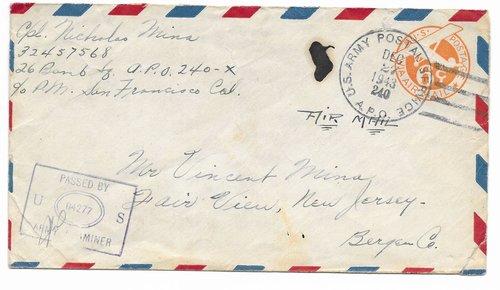 Cpl. Nicholas Mina
32457568
26 Bomb Sq. A.P.O. 240-X
c/o P.M. San Francisco Cal.
U.S. ARMY POSTAL SERVICE
DEC
1943
240
A.P.O.
U.S. POSTAGE
VIA AIR MAIL
6c
AIR MAIL
Mr Vincent Mina
Fair View, New Jersey.
Bergen Co.
PASSED BY
U 04277 S
ARMY EXAMINER